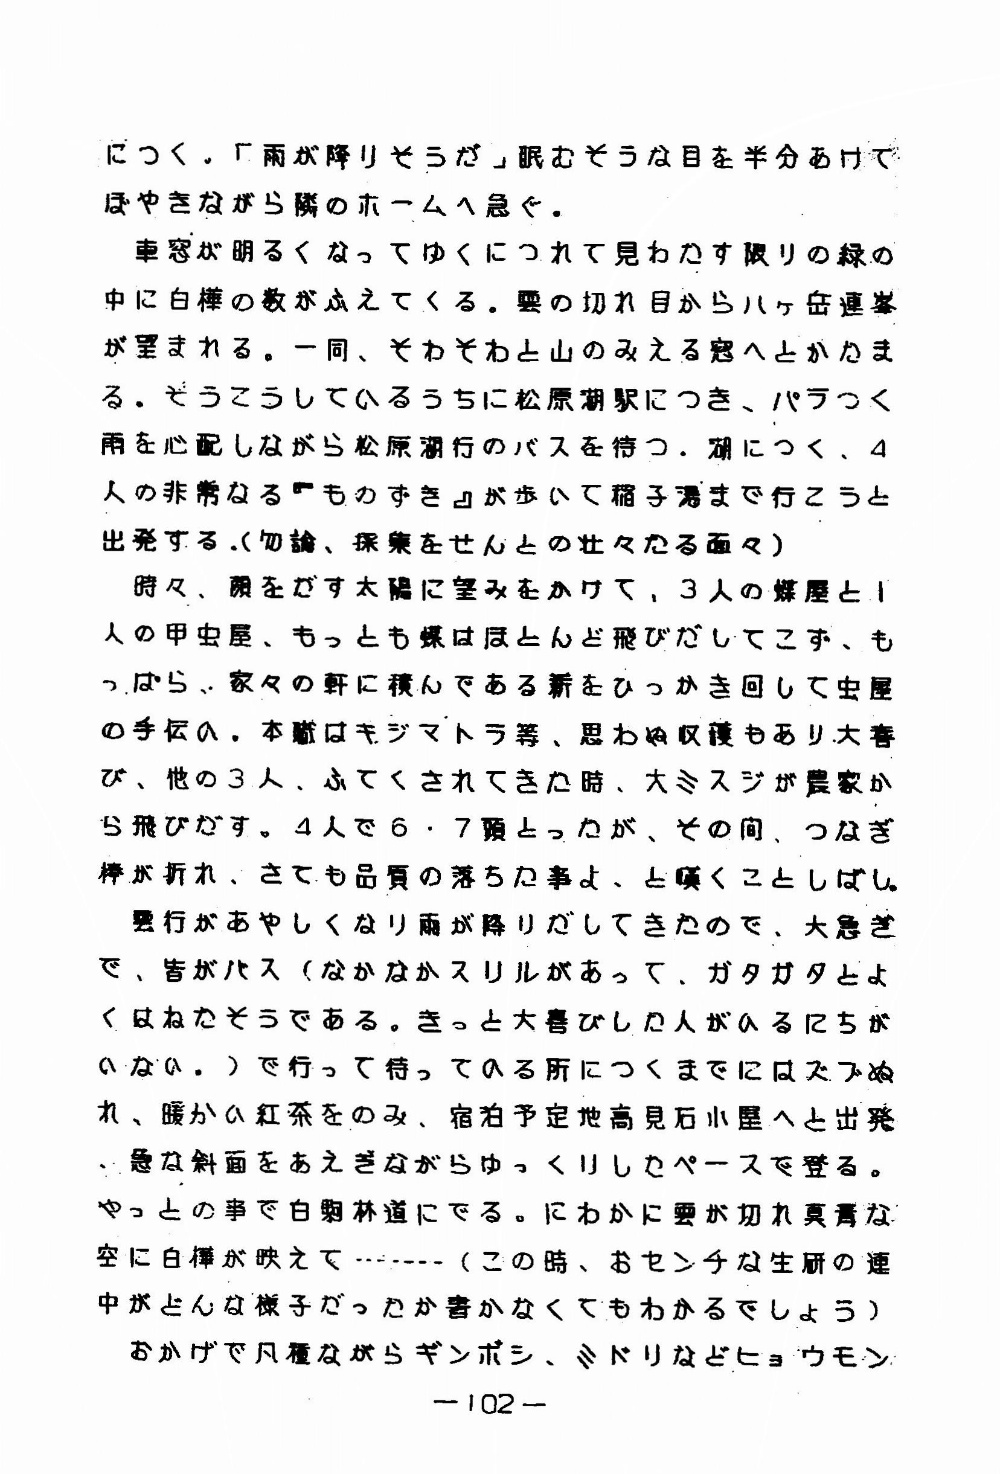 につく。「雨が降りそうだ」眠むそうな目を半分あけて
ぼやきながら隣のホームへ急ぐ。
車窓が明るくなってゆくにつれて見わたす限りの緑の
中に白樺の数がふえてくる。雲の切れ目から八ヶ岳連峯
が望まれる。一同、そわそわと山のみえる窓へとかたま
る。そうこうしているうちに松原湖駅につき、パラつく
雨を心配しながら松原湖行のバスを待つ。湖につく、4
人の非常なる『ものずき』が歩いて稲子湯まで行こうと
出発する。(勿論、採集をせんとの壮々たる面々)
時々、顔をだす太陽に望みをかけて、3人の蝶屋と1
人の甲虫屋、もっとも蝶はほとんど飛びだしてこず、も
っぱら、家々の軒に積んである薪をひっかき回して虫屋
の手伝い。本職はキジマトラ等、思わぬ収穫もあり大喜
び、他の3人、ふてくされてきた時、大ミスジが農家か
ら飛びだす。4人で6・7頭とったが、その間、つなぎ
棒が折れ、さても品質の落ちた事よ、と嘆くことしばし。
雲行があやしくなり雨が降りだしてきたので、大急ぎ
で、皆がバス(なかなかスリルがあって、ガタガタとよ
くはねたそうである。きっと大喜びした人がいるにちが
いない。)で行って待っている所につくまでにはズブぬ
れ、暖かい紅茶をのみ、宿泊予定地高見石小屋へと出発
、急な斜面をあえぎながらゆっくりしたペースで登る。
やっとの事で白駒林道にでる。にわかに雲が切れ真青な
空に白樺が映えて‥‥‥‥(この時、おセンチな生研の連
中がどんな様子だったか書かなくてもわかるでしょう)
おかげで凡種ながらギンボシ、ミドリなどヒョウモン
—102—